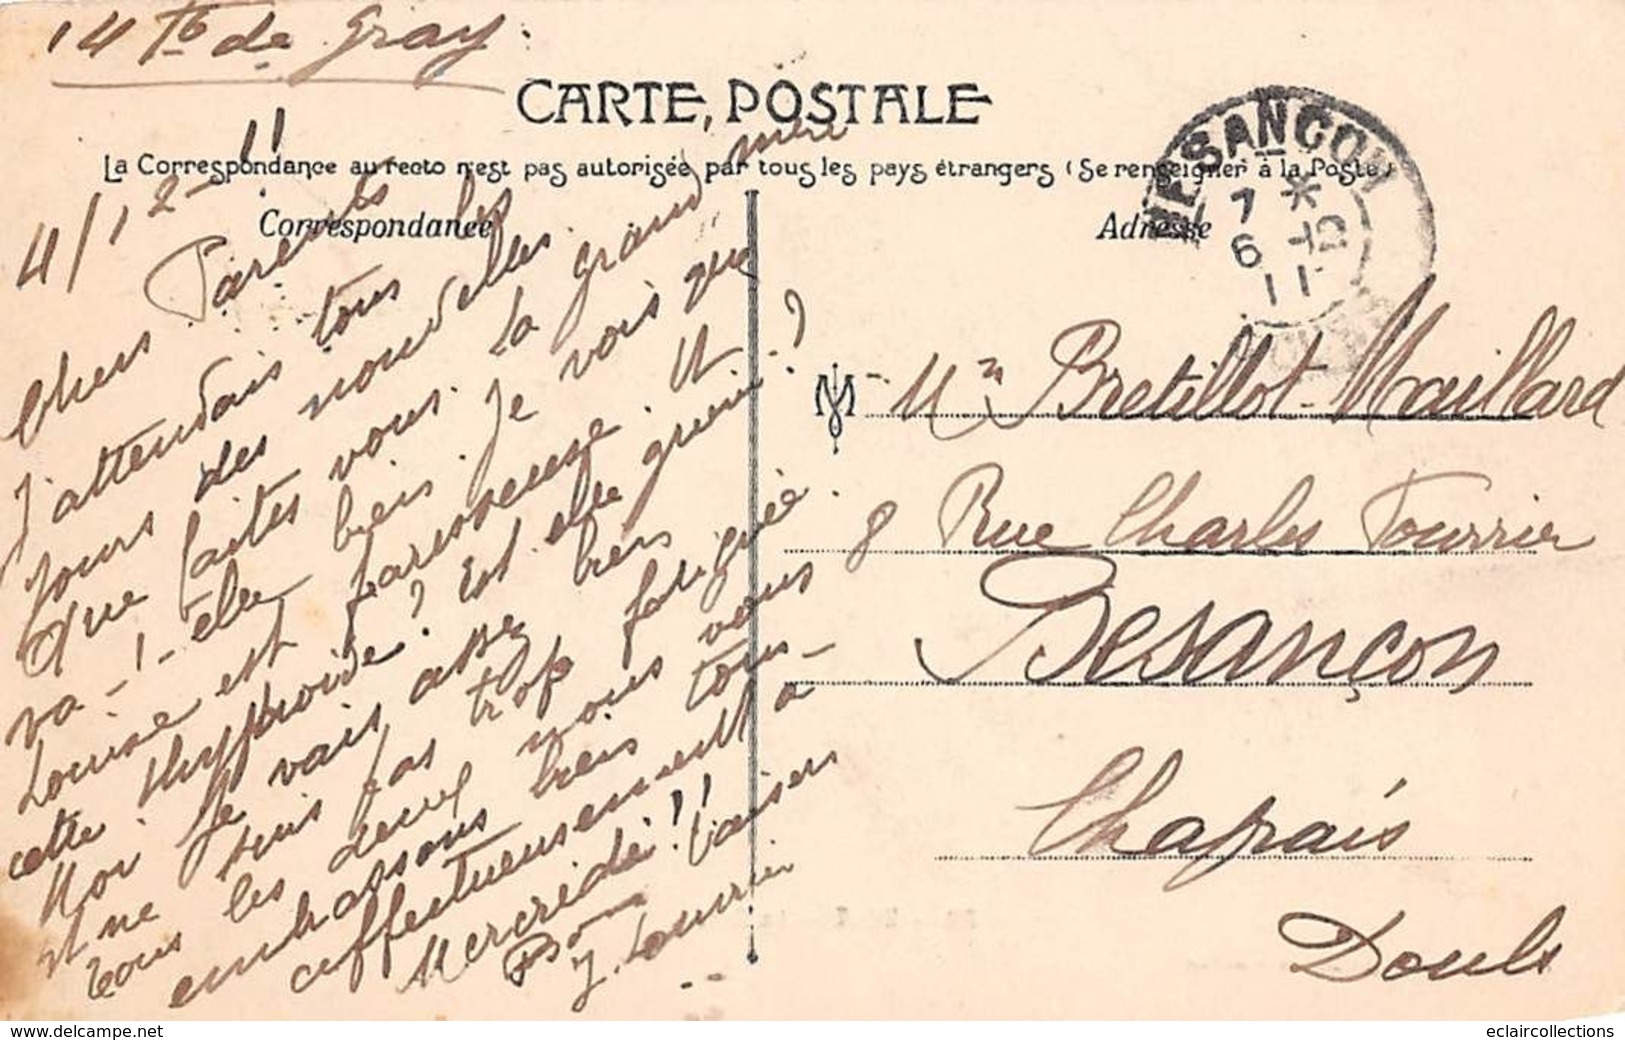 14 Tb de Gray.
CARTE POSTALE
La Correspondance au recto n'est pas autorisée par tous les pays étrangers (Se renseigner à la Poste)
Correspondance
Adresse
BESANCON
7 *
6 - 12
11
DOUBS
4/12-11
Chers Parents
J'attendais tous les
jours des nouvelles.
Que faites vous. la grand mère
va-t-elle bien. Je vois que
Louise est paresseuse et
cette ? Est elle guérie ?
Moi je vais assez bien
et ne suis pas trop fatiguée.
Tous les deux nous vous
embrassons bien tous
affectueusement à
Mercredi !!
Bons baisers
J. Lourrier
Mme Bretillot-Maillard
8 Rue Charles Fourrier
Besançon
Chaprais
Doubs
www.delcampe.net
eclaircollections